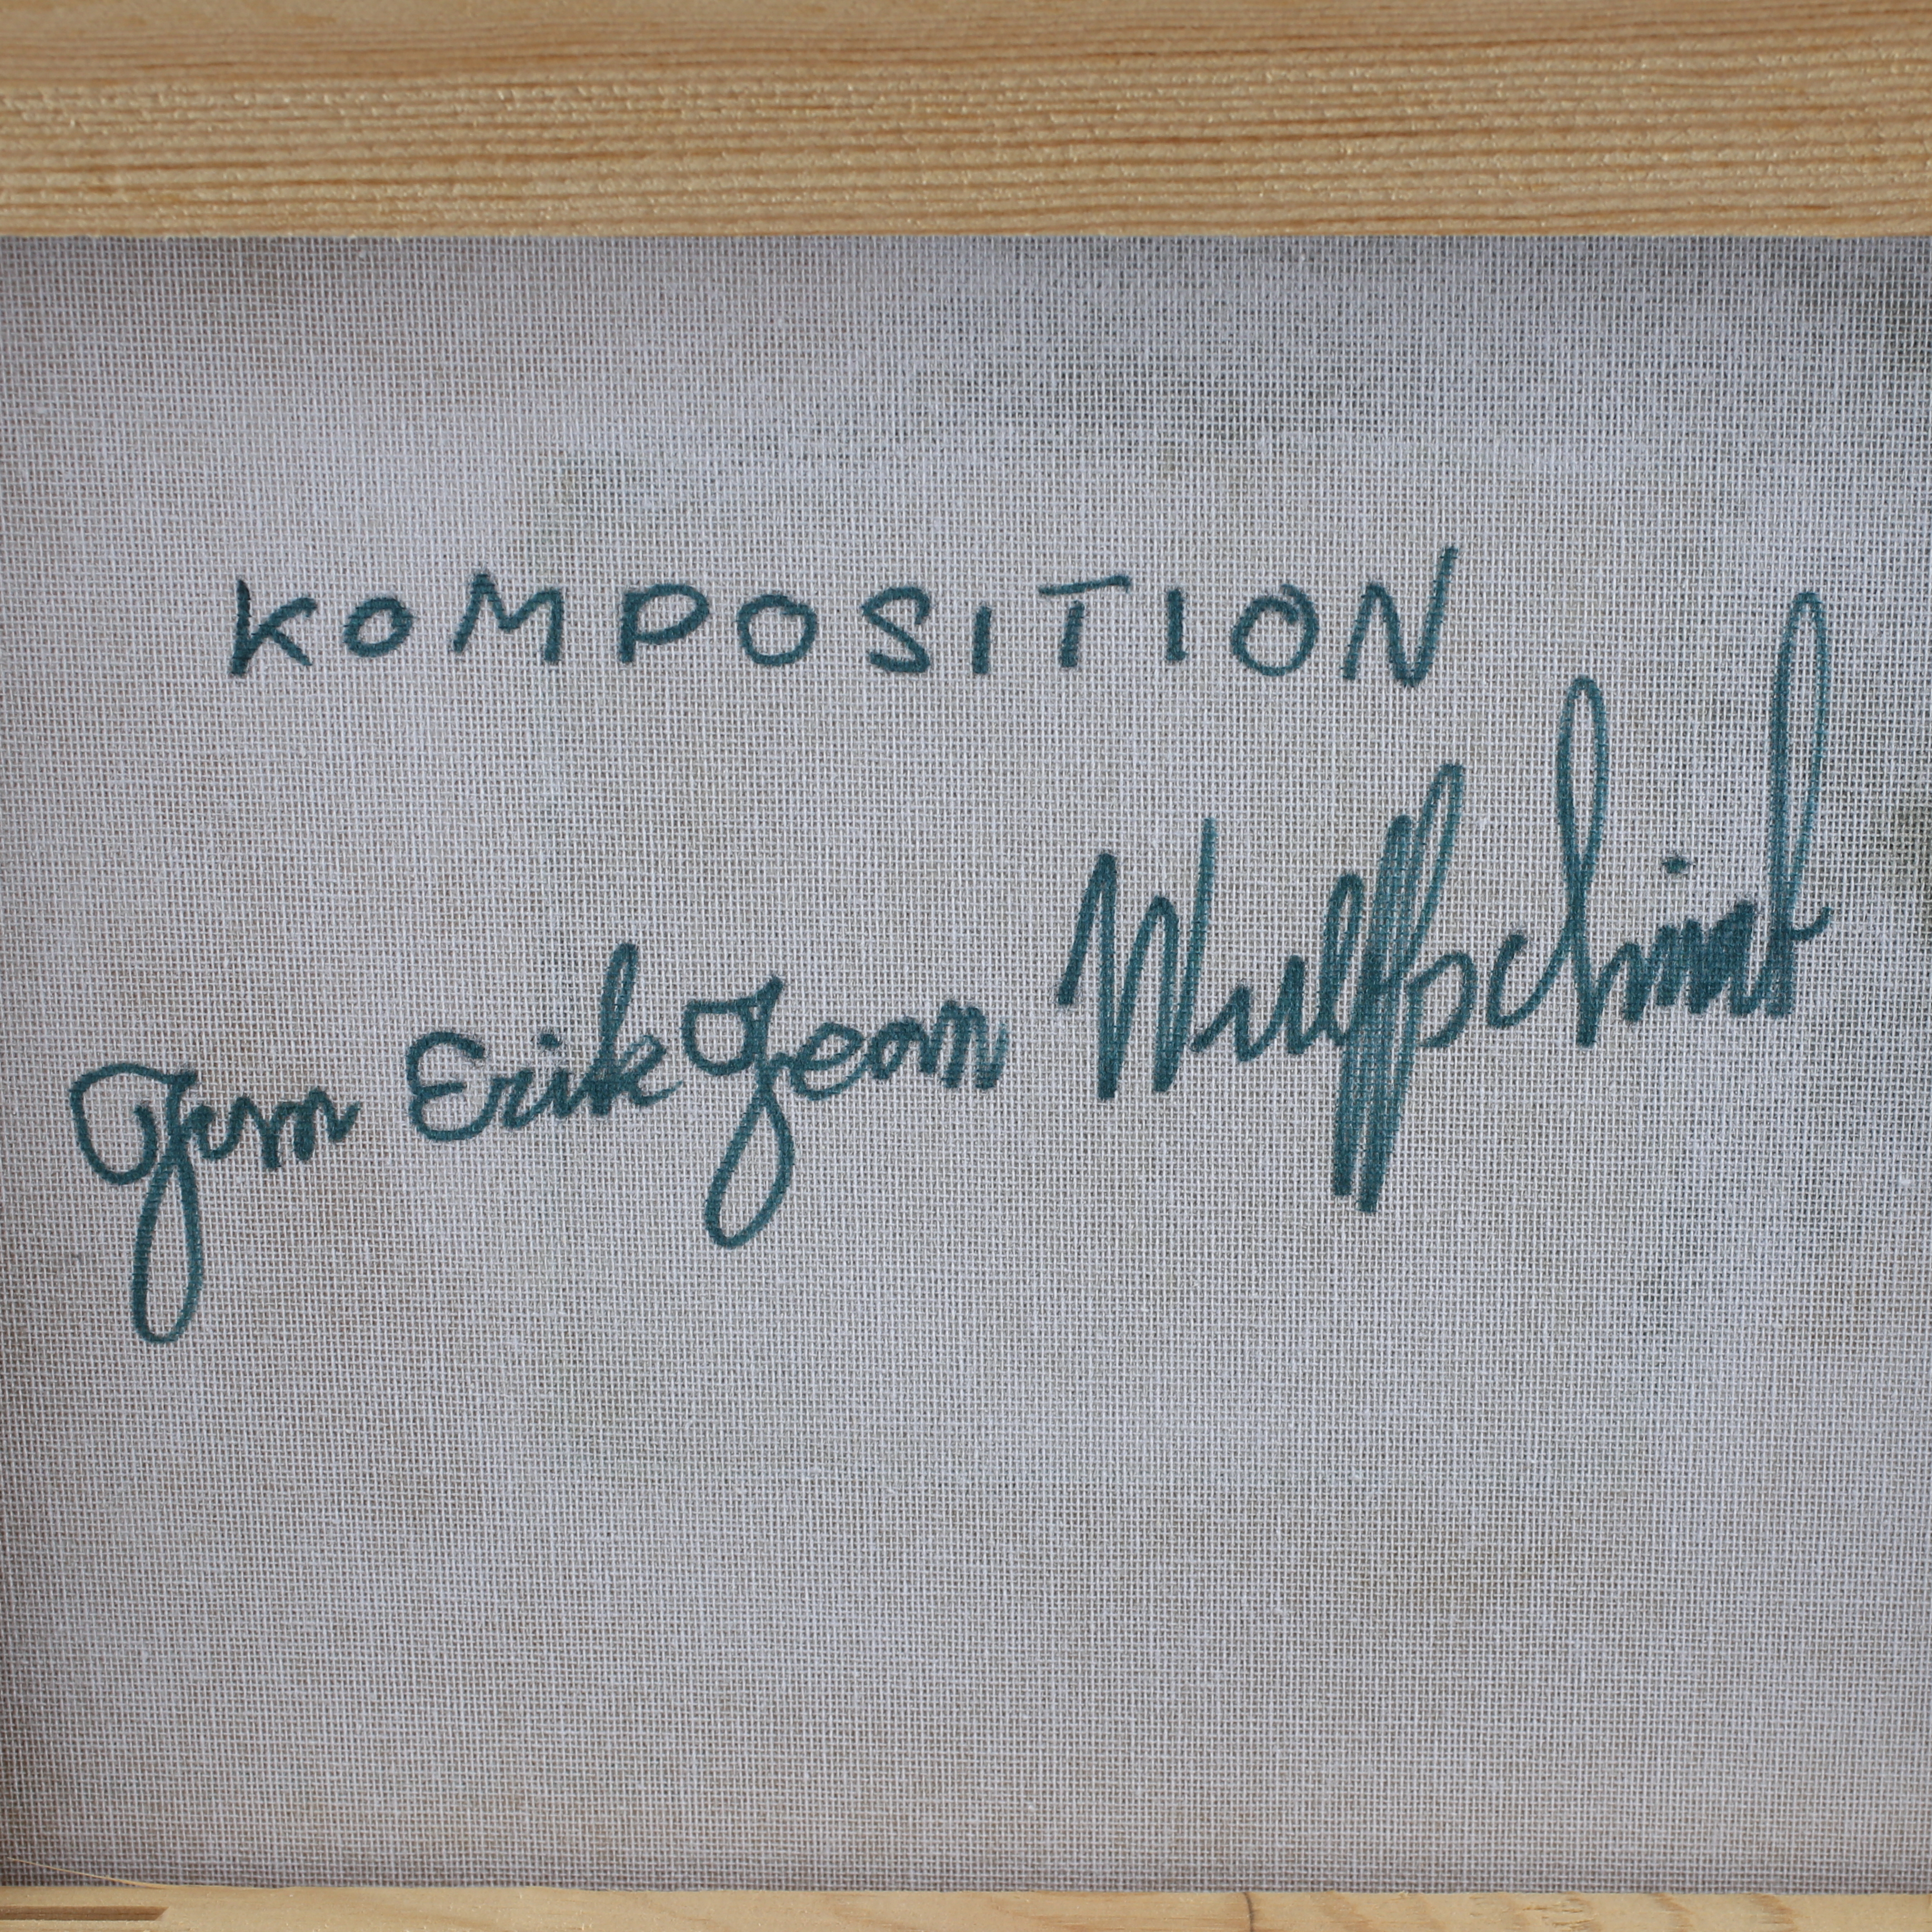 KOMPOSITION
Jern Erik Jean Wulffschmidt